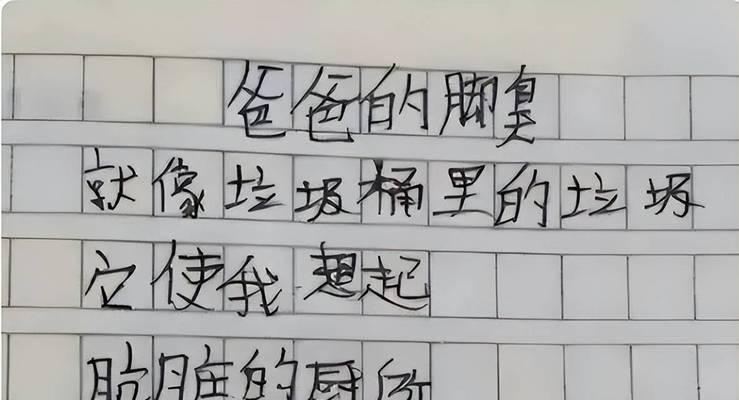 爸爸的脚臭
就像垃圾桶里的垃圾
它使我想起
肮脏的厕所